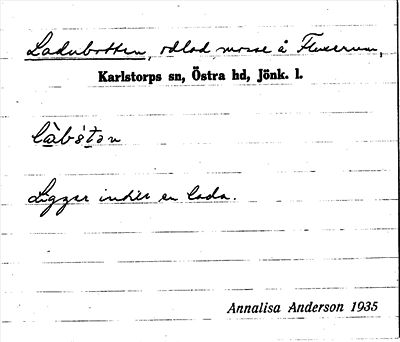 Ladubotten, odlad mosse å Fluxerum,
Karlstorps sn, Östra hd, Jönk. l.
Ligger intill en lada.
Annalisa Anderson 1935